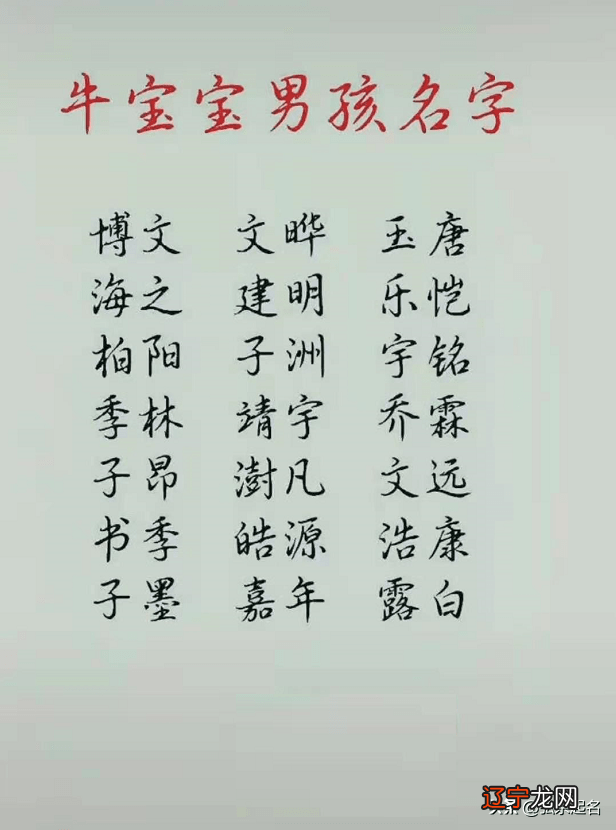 牛宝宝男孩名字
博文 文晔 玉唐
海之 建明 乐恺
柏阳 子洲 宇铭
季林 靖宇 乔霖
子昂 澍凡 文远
书季 皓源 浩康
子墨 嘉年 露白
辽宁龙网